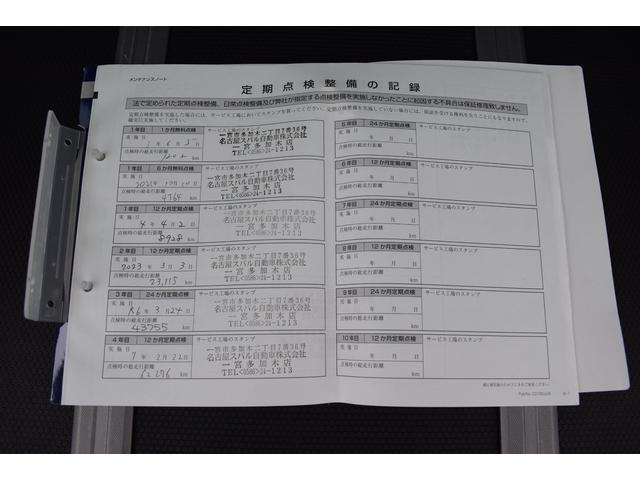 メンテナンスノート
定期点検整備の記録
法で定められた定期点検整備、日常点検整備及び弊社が指定する点検整備を実施しなかったことに起因する不具合は保証修理致しません。
1年目 1か月無料点検 サービス工場のスタンプ
実施日 1年 6月 5日
点検時の総走行距離 km
一宮市多加木二丁目7番36号
名古屋スバル自動車株式会社
一宮多加木店
TEL<0586>24-1213
1年目 6か月無料点検 サービス工場のスタンプ
実施日 2021年 月 日
点検時の総走行距離 4765 km
一宮市多加木二丁目7番36号
名古屋スバル自動車株式会社
一宮多加木店
TEL<0586>24-1213
1年目 12か月定期点検 サービス工場のスタンプ
実施日 4年 4月 2日
点検時の総走行距離 8928 km
一宮市多加木二丁目7番36号
名古屋スバル自動車株式会社
一宮多加木店
TEL<0586>24-1213
2年目 12か月定期点検 サービス工場のスタンプ
実施日 2023年 3月 3日
点検時の総走行距離 23,115 km
一宮市多加木二丁目7番36号
名古屋スバル自動車株式会社
一宮多加木店
TEL<0586>24-1213
3年目 24か月定期点検 サービス工場のスタンプ
実施日 R6年 3月 24日
点検時の総走行距離 43755 km
一宮市多加木二丁目7番36号
名古屋スバル自動車株式会社
一宮多加木店
TEL<0586>24-1213
4年目 12か月定期点検 サービス工場のスタンプ
実施日 7年 2月 22日
点検時の総走行距離 62,276 km
一宮市多加木二丁目7番36号
名古屋スバル自動車株式会社
一宮多加木店
TEL<0586>24-1213
5年目 24か月定期点検 サービス工場のスタンプ
実施日 年 月 日
点検時の総走行距離 km
6年目 12か月定期点検 サービス工場のスタンプ
実施日 年 月 日
点検時の総走行距離 km
7年目 24か月定期点検 サービス工場のスタンプ
実施日 年 月 日
点検時の総走行距離 km
8年目 12か月定期点検 サービス工場のスタンプ
実施日 年 月 日
点検時の総走行距離 km
9年目 24か月定期点検 サービス工場のスタンプ
実施日 年 月 日
点検時の総走行距離 km
10年目 12か月定期点検 サービス工場のスタンプ
実施日 年 月 日
点検時の総走行距離 km